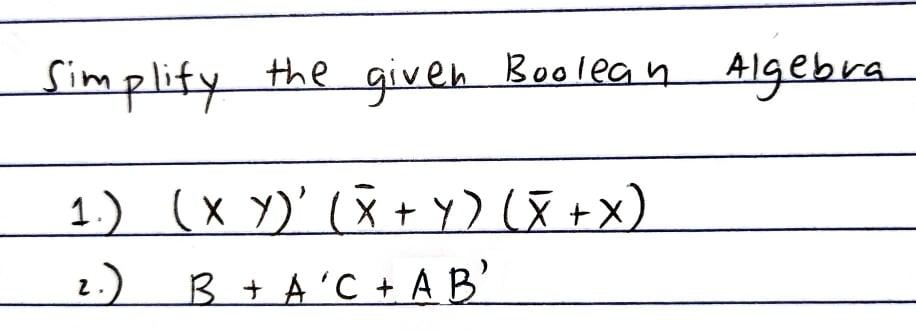 Simplify the given Boolean Algebra
1.) (X Y)' (X̄ + Y) (X̄ + X)
2.) B + A'C + AB'